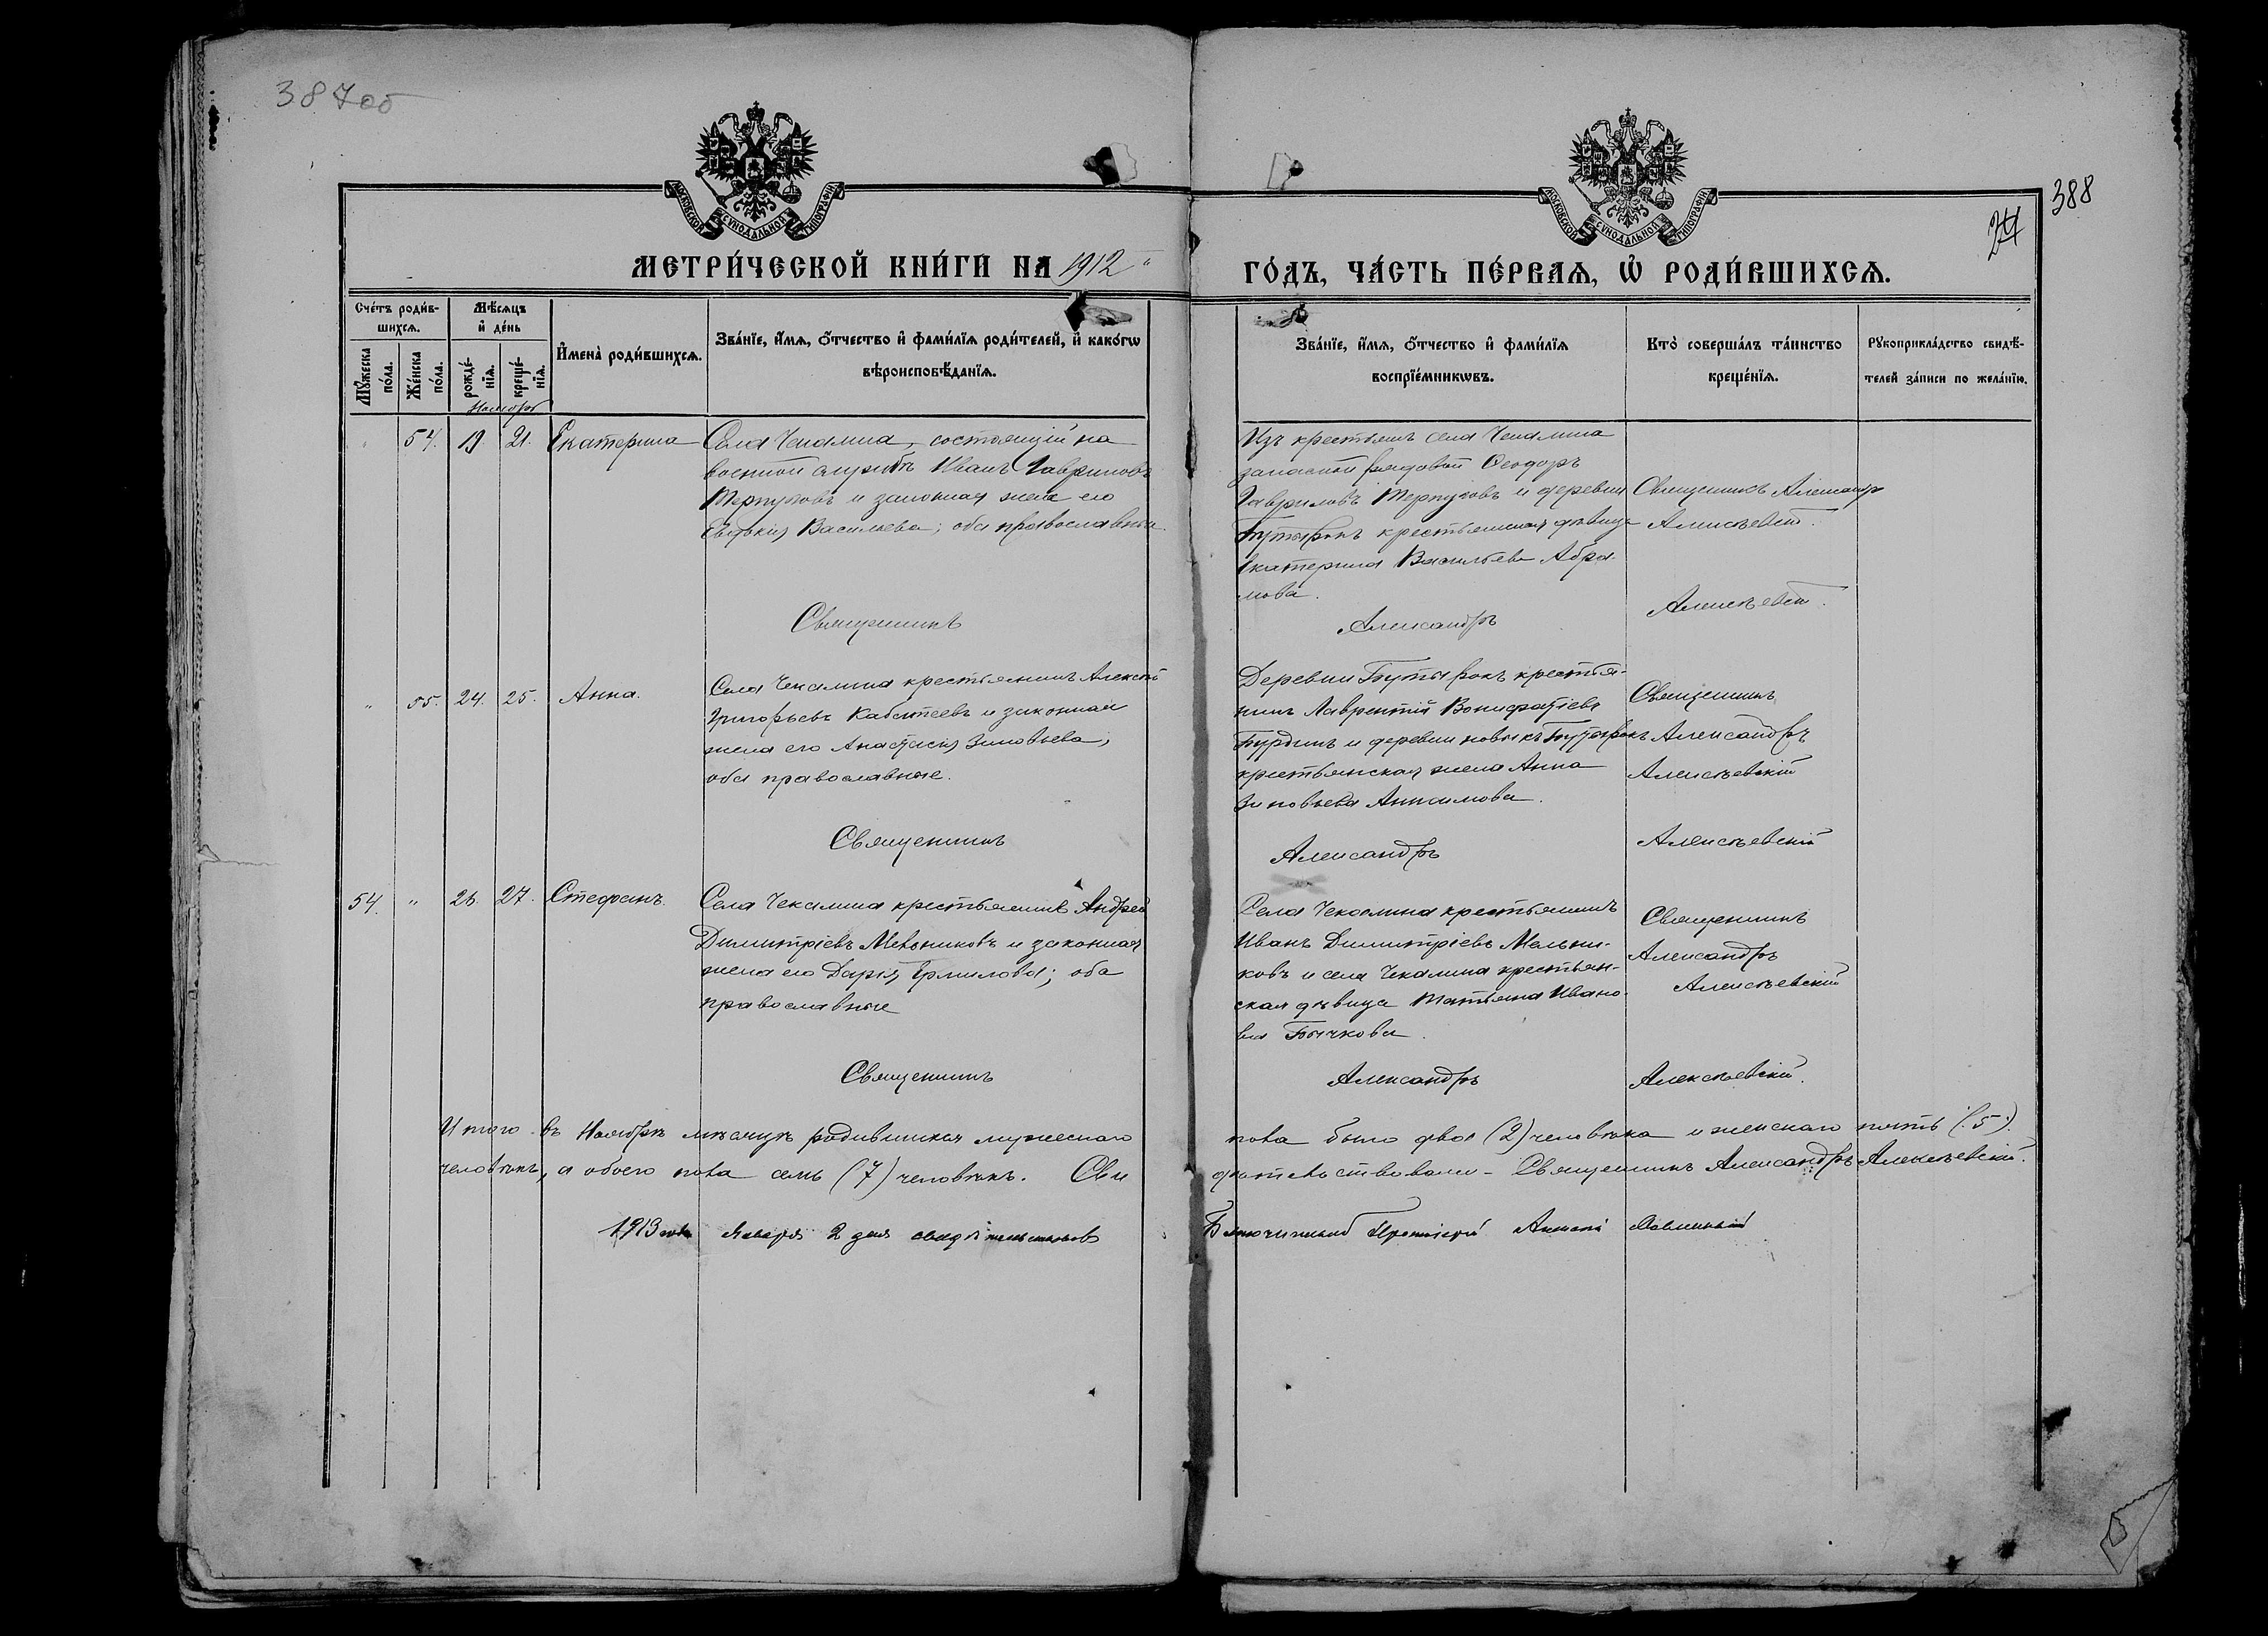 387об
388
24
МОСКОВСКОЙ СѴНОДАЛЬНОЙ ТИПОГРАФІИ
МОСКОВСКОЙ СѴНОДАЛЬНОЙ ТИПОГРАФІИ
МЕТРИ́ЧЕСКОЙ КНИ́ГИ НА 1912
ГО́ДЪ, ЧА́СТЬ ПЕ́РВАѦ, Ѡ҆ РОДИ́ВШИХСѦ.
Сче́тъ роди́в-
шихсѧ.
Мꙋ́жеска по́ла.
Же́нска по́ла.
Мѣ́сѧцъ
и҆ де́нь
рожде́-
нїѧ.
креще́-
нїѧ.
Ноябрь
И҆мена̀ роди́вшихсѧ.
Зва́нїе, и҆́мѧ, ѻ҆́тчество и҆ фами́лїѧ роди́телей, и҆ како́гѡ
вѣроисповѣ́данїѧ.
Зва́нїе, и҆́мѧ, ѻ҆́тчество и҆ фами́лїѧ
воспрїе́мникѡвъ.
Кто̀ соверша́лъ та́инство
креще́нїѧ.
Рꙋкоприкла́дство свидѣ́-
телей за́писи по жела́нїю.
54. 19 21. Екатерина
Села Чекалина, состоящій на
военной службѣ Иванъ Гавриловъ
Терпуговъ и законная жена его
Евдокія Васильева; оба православные
Изъ крестьянъ села Чекалина
запасной рядовой Ѳеодоръ
Гавриловъ Терпуговъ и деревни
Бутырокъ крестьянская дѣвица
Екатерина Васильева Абра-
мова.
Священникъ Александр
Алексѣевскій.
Священникъ Александръ Алексѣевскій.
" 55. 24. 25. Анна.
Села Чекалина крестьянинъ Алексѣй
Григорьевъ Кабатеевъ и законная
жена его Анастасія Зиновьева;
оба православные.
Деревни Бутырокъ крестья-
нинъ Лаврентій Вонифатіевъ
Бурдинъ и деревни новыхъ Бутырокъ
крестьянская жена Анна
Зиновьева Анисимова.
Священникъ
Александръ
Алексѣевскій
Священникъ Александръ Алексѣевскій
54. " 26. 27. Стефанъ.
Села Чекалина крестьянинъ Андрей
Димитріевъ Мельниковъ и законная
жена его Дарія Ермилова; оба
православные
Села Чекалина крестьянинъ
Иванъ Димитріевъ Мельни-
ковъ и села Чекалина крестьян-
ская дѣвица Татьяна Ивано-
ва Бычкова.
Священникъ
Александръ
Алексѣевскій
Священникъ Александръ Алексѣевскій.
Итого въ Ноябрѣ мѣсяцѣ родившихся мужескаго пола было двое (2) человѣка и женскаго пять (5).
человѣкъ, а обоего пола семь (7) человѣкъ. Сви дѣтельствовали - Священникъ Александръ Алексѣевскій.
1913 года Января 2 дня свидѣтельствовалъ Благочинный Протоіерей